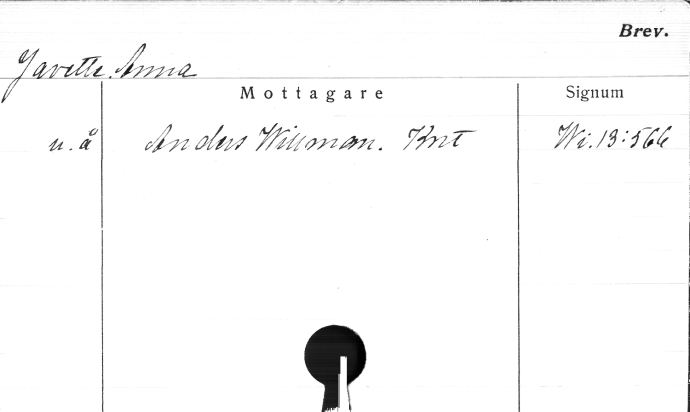 Brev.
Javette Anna
Mottagare Signum
u.å Anders Willman. Knt Wi.13:566